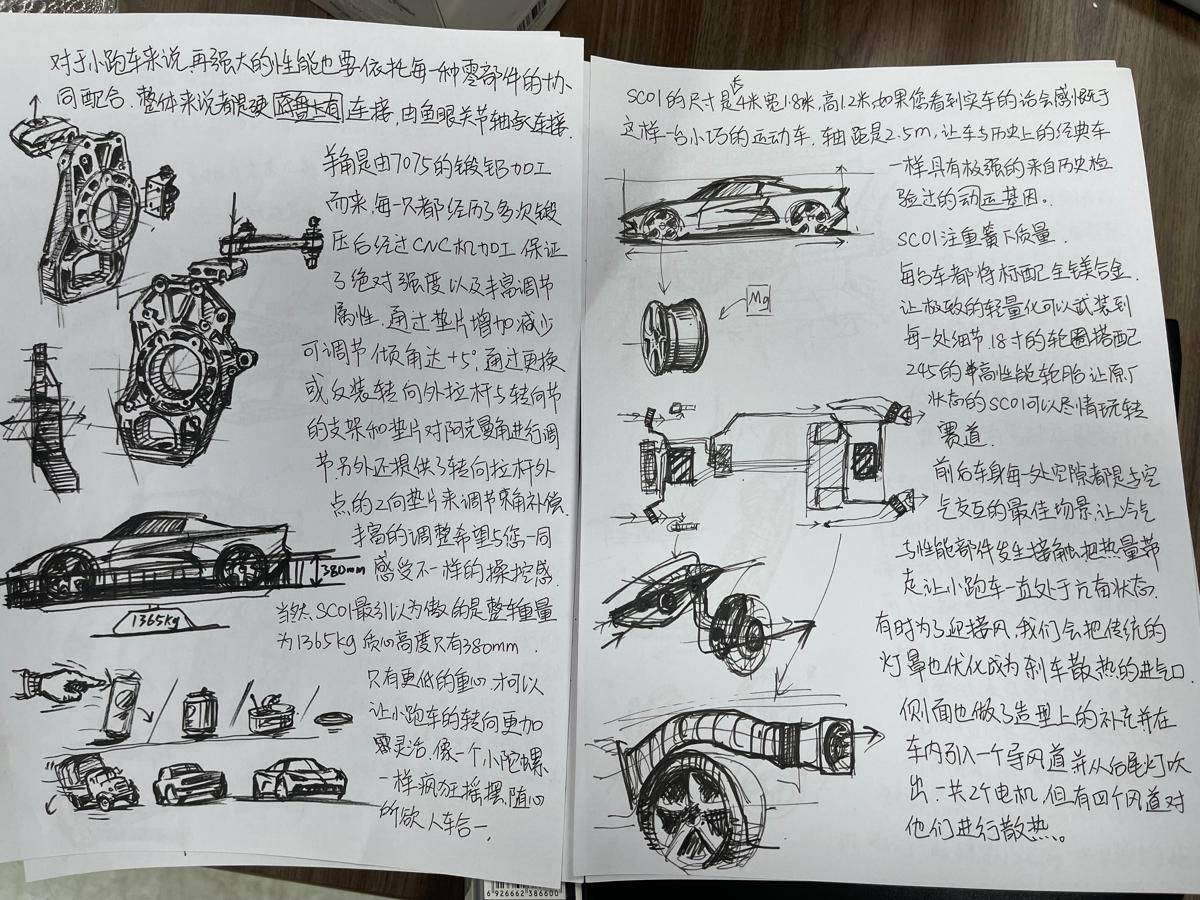 对于小跑车来说,再强大的性能也要依托每一种零部件的协
同配合.整体来说都是硬 连接,由鱼眼关节轴承连接.
羊角是由7075的锻铝加工
而来,每一只都经历了多次锻
压后经过CNC机加工.保证
了绝对强度以及丰富调节
属性,通过垫片增加减少
可调节倾角达+5°,通过更换
或反装转向外拉杆与转向节
的支架和垫片对阿克曼角进行调
节.另外还提供了转向拉杆外
点的Z向垫片来调节束角补偿.
丰富的调整希望与您一同
感受不一样的操控感.
380mm
1365kg
当然,SC01最引以为傲的是整车重量
为1365kg 质心高度只有380mm.
只有更低的重心.才可以
让小跑车的转向更加
灵活.像一个小陀螺
一样疯狂摇摆,随心
所欲 人车合一.
SC01的尺寸是长4米宽1.8米,高1.2米,如果您看到实车的话会感慨于
这样一台小巧的运动车,轴距是2.5m,让车与历史上的经典车
一样具有极强的来自历史检
验过的运动基因。
SC01注重簧下质量.
每台车都将标配全镁合金.
让极致的轻量化可以武装到
每一处细节,18寸的轮圈搭配
245的半高性能轮胎让原厂
状态的SC01可以尽情玩转
赛道.
Mg
前后车身每一处空隙都是与空
气交互的最佳场景,让冷气
与性能部件发生接触,把热量带
走,让小跑车一直处于亢奋状态.
有时为了迎接风,我们会把传统的
灯罩也优化成为刹车散热的进气口.
侧面也做了造型上的补充并在
车内引入一个导风道并从后尾灯吹
出.一共2个电机,但有四个风道对
他们进行散热。
6 926662 386600